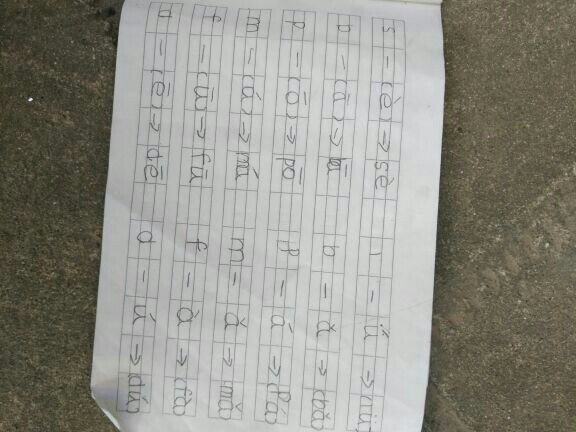 s – (è) → sè – →
b – (ā) → bā b – ǎ → (bǎ)
p – (ō) → pō p – á → (pá)
m – (á) → má m – ǎ → (mǎ)
f – (ū) → fū f – à → (fà)
d – (ē) → dē d – ú → (dú)